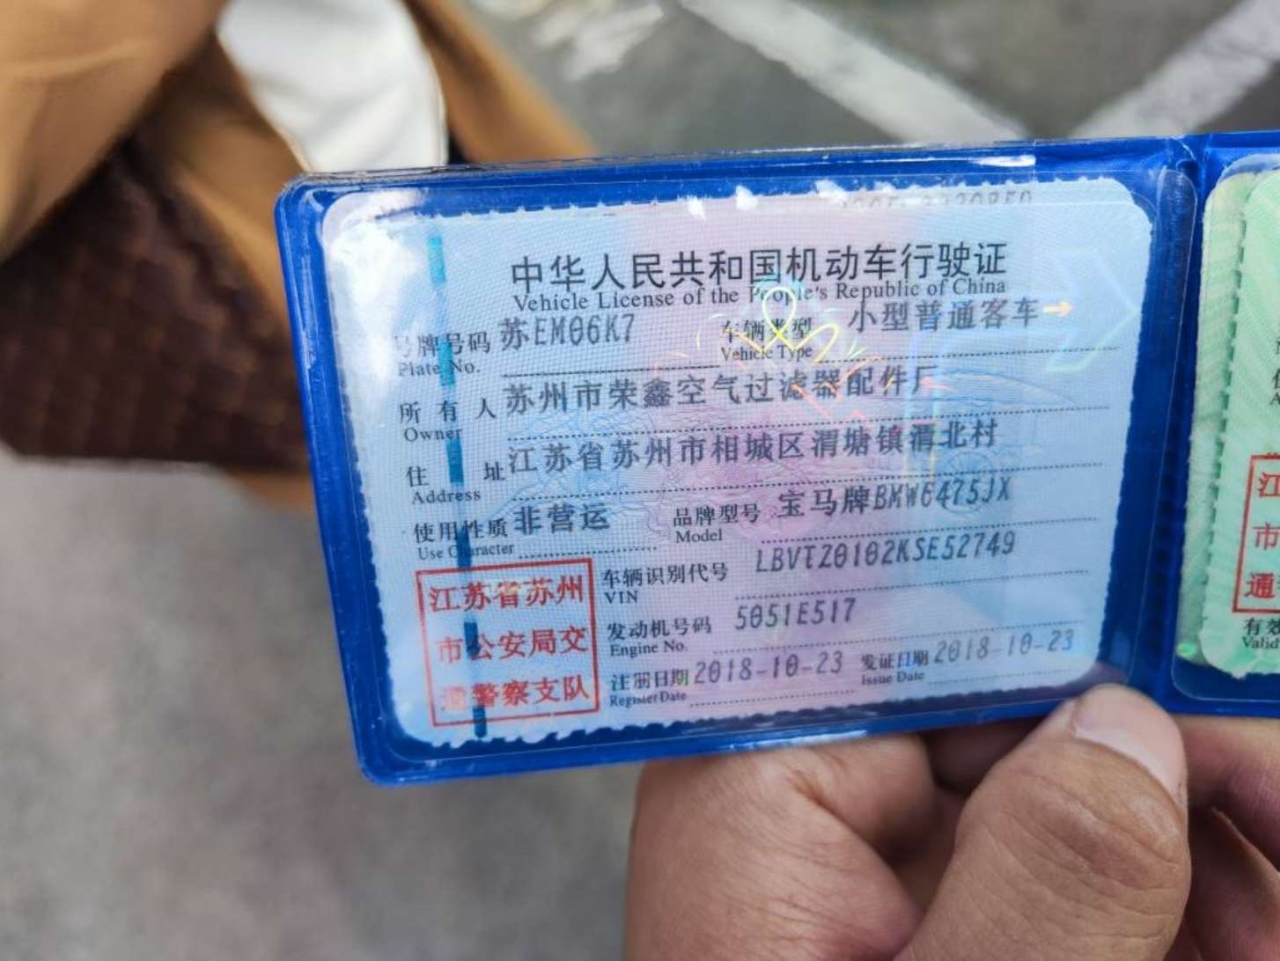 中华人民共和国机动车行驶证
Vehicle License of the People's Republic of China
号牌号码 苏EM06K7 车辆类型 小型普通客车
Plate No. Vehicle Type
所有人 苏州市荣鑫空气过滤器配件厂
Owner
住址 江苏省苏州市相城区渭塘镇渭北村
Address
使用性质 非营运 品牌型号 宝马牌BMW6475JX
Use Character Model
车辆识别代号 LBVTZ0102KSE52749
VIN
发动机号码 5051E517
Engine No.
注册日期 2018-10-23 发证日期 2018-10-23
Register Date Issue Date
江苏省苏州
市公安局交
通警察支队
江
市
通
有效
Valid